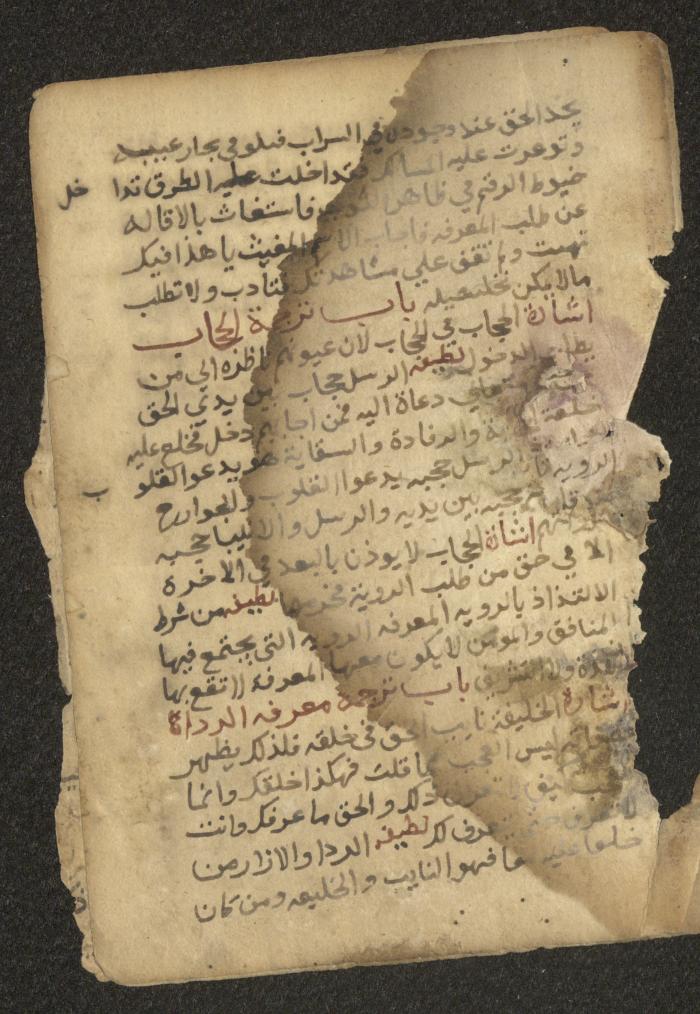 يجد الحق عند وجوده في السراب فبلو في بحار عيبه
وتوعرت عليه المسالك فتداخلت عليه الطرق تدا خل
خيوط الرقم في ظاهر الثوب فاستغاث بالاقاله
عن طلب المعرفه فاجاب الاسم المغيث يا هذا فيك
تهت ولم تقف علي مشاهدتك فتادب ولا تطلب
مالا يمكن تحصيله باب ترجمة الحجاب
اشارة الحجاب في الحجاب لان عيونهم ناظره الي من
يطلب الدخول لطيفه الرسل حجاب بين يدي الحق
تعالي دعاة اليه فمن اجابهم دخل فخلع عليه
خلعة والرفادة والسقاية هو يدعوا القلو ب
الرويه فان الرسل حجبه يدعوا القلوب والجوارح
حجبه بين يديه والرسل والانبيا حجبه
اشارة الحجاب لا يوذن بالبعد في الاخرة
الا في حق من طلب الروية لطيفه من شرط
الالتذاذ بالرويه المعرفه الرويه التي يجتمع فيها
المنافق والمومن لا يكون معها المعرفة لا تقع بها
لذة ولا تشريف باب ترجمة معرفه الرداة
اشارة الخليفة نايب الحق في خلقه فلذلك يظهر
ليس العجب مما قلت فهكذا خلقك وانما
العجب كيف ذلك والحق ما عرفك وانت
لا تعرف حتي تعرف لك لطيفه الردا والازار من
خلعا عليه فهو النايب والخليفه ومن كان